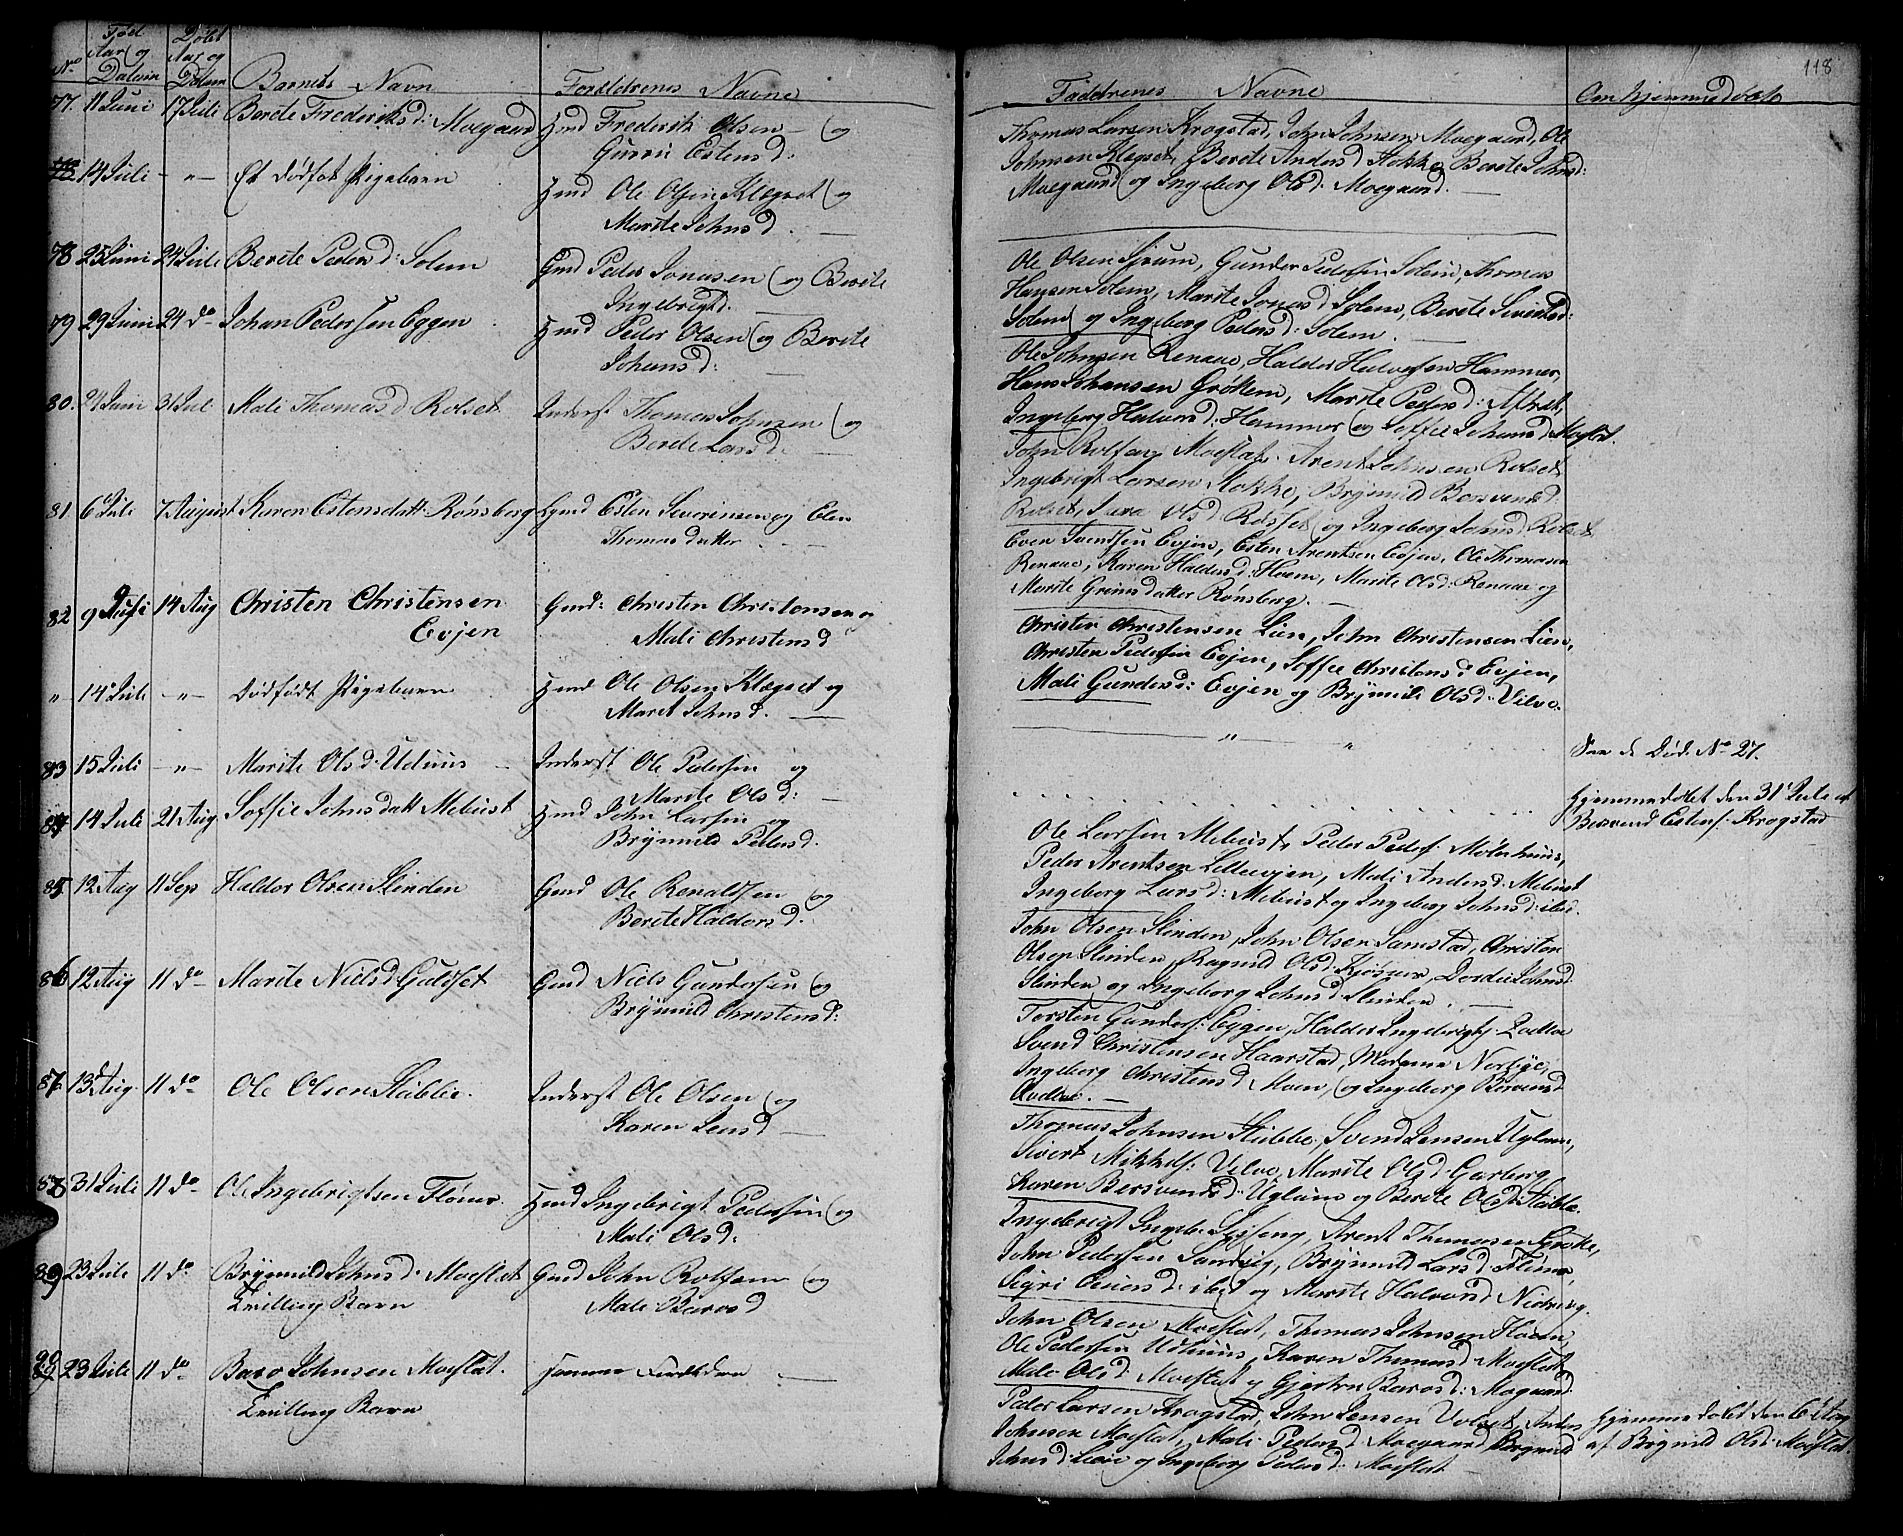 118
No
Fød
Aar og
Datum
Døbt
Aar og
Datum
Barnets Navn
Forældrenes Navne
Faddrenes Navne
Om hjemmedøbt
77. 11 Juni 17 Juli Berete Frederiksd: Moegaard
Hmd Frederik Olsen og
Gurru Estensd:
Thomas Larsen Krogstad, John Johnsen Moegaard, Ole
Johnsen Klegset, Berete Andersd Stokke, Berete Johnsd:
Moegaard og Ingeborg Olsd: Moegaard.
14 Juli - " - Et dødføt Pigebarn
Hmd Ole Olsen Klegset og
Marite Johnsd.
78 25 Juni 24 Juli Berete Pedersd: Solem
Gmd Peder Jonasen og Berete
Ingebrigtd.
Ole Olsen, Gunder Pedersen Solem, Thomas
Hansen Solem, Marite Jonasd: Solem, Berete Sivertsd:
Solem og Ingeborg Pedersd: Solem.
79 29 Juni 24 do Johan Pedersen Eggen
Hmd Peder Olsen og Berete
Johansd:
Ole Johnsen Renaae, Haldor Halvorsen Hammer,
Hans Johansen Grøtem, Marite Pedersd: Aftret,
Ingeborg Halvorsd: Hammer og Soffie Johansd Moeslet.
80. 24 Juni 31 Juli Mali Thomasd Rolset
Inderst Thomas Johnsen og
Berete Larsd:
John Rolfsen Moeslet, Arent Johnsen Rolset
Ingebrigt Larsen Stokke, Brynnild Bersvensd
Rolset, Olsd Rolset og Ingeborg Johnsd Rolset
81 6 Juli 7 August Karen Estensdatt: Rønsberg
Gmd Esten Severinsen og Elen
Thomasdatter
Even Svendsen Evjen, Esten Arentsen Evjen, Ole Thomasen
Renaae, Karen Haldorsd: Hoem, Marite Olsd: Renaae og
Marite Grimsdatter Rønsberg.
82 9 Juli 14 Aug Christen Christensen
Evjen
Gmd: Christen Christensen og
Mali Christensd
Christen Christensen Lien, John Christensen Lien,
Christen Pedersen Evjen, Soffie Christensd Evjen,
Mali Gundersd: Evjen og Brynnild Olsd: Vilvo.
" 14 Juli - " - Dødfødt Pigebarn
Hmd Ole Olsen Klægset og
Marit Johnsd.
" "
83 15 Juli - " - Marite Olsd: Uduus
Inderst Ole Pedersen og
Marite Olsd:
See de Død: No 27.
84 14 Juli 21 Aug Soffie Johnsdatt Mebust
Hmd John Larsen og
Brynnild Pedersd.
Hjemmedøbt den 31 Juli af
Bersvend Estens. Krogstad
Ole Larsen Mebust, Peder Peders. Mølnhuus,
Peder Arentsen Lilleevjen, Mali Andersd: Mebust
Ingeborg Larsd: Mebust og Ingeborg Johnsd: ibid.
85 12 Aug 11 Sep Haldor Olsen Slinden
Gmd Ole Renaldsen og
Berete Haldorsd.
John Olsen Slinden, John Olsen Samstad, Christen
Olsen Slinden, Ragnild Olsd Kjøsnes, Dordie Johnsd
Slinden og Ingeborg Johnsd: Slinden.
86 12 Aug 11 do Marite Nielsd Guldset
Gmd Niels Gundersen og
Brynnild Christensd:
Torsten Gunders. Eggen, Haldor Ingebrigts. Rodtvo
Svend Christensen Haarstad, Madame Norbye,
Ingeborg Christensd Moen, og Ingeborg Bersvensd
Rodtvo.
87 13 Aug. 11 do Ole Olsen Stubbe.
Inderst Ole Olsen og
Karen Jensd
Thomas Johnsen Stubbe, Svend Jensen Uglem,
Sivert Mikkels. Vilvo, Marite Olsd: Garberg
Karen Bersvensd: Uglem og Berete Olsd: Stubbe.
88 31 Juli 11 do Ole Ingebrigtsen Flønes.
Hmd Ingebrigt Pedersen og
Mali Olsd:
Ingebrigt, Arent Thomasen,
John Pedersen Sandvig, Brynnild Larsd: Flønes,
Sigri Olsd: ibid og Marite Halvorsd
89 23 Juli 11 do Brynnild Johnsd: Moeslet
Tvilling Barn
Gmd John Rolfsen og
Mali Barosd
John Olsen Moeslet, Thomas Johnsen Hoem,
Ole Pedersen Uthuus, Karen Thomasd Moeslet
Mali Olsd: Moeslet og Gjertru Barosd: Mogaard.
90 23 Juli 11 do Baro Johnsen Moeslet.
Tvilling Barn
samme Forældre
Peder Larsen Krogstad, John Jensen, Anders
Johnsen Moeslet, Mali Pedersd Moegaard, Brynnild
Johnsd: Lien og Ingeborg Pedersd: Moeslet
Hjemmedøbt den 6 Aug
af Brynild Olsd: Moeslet.